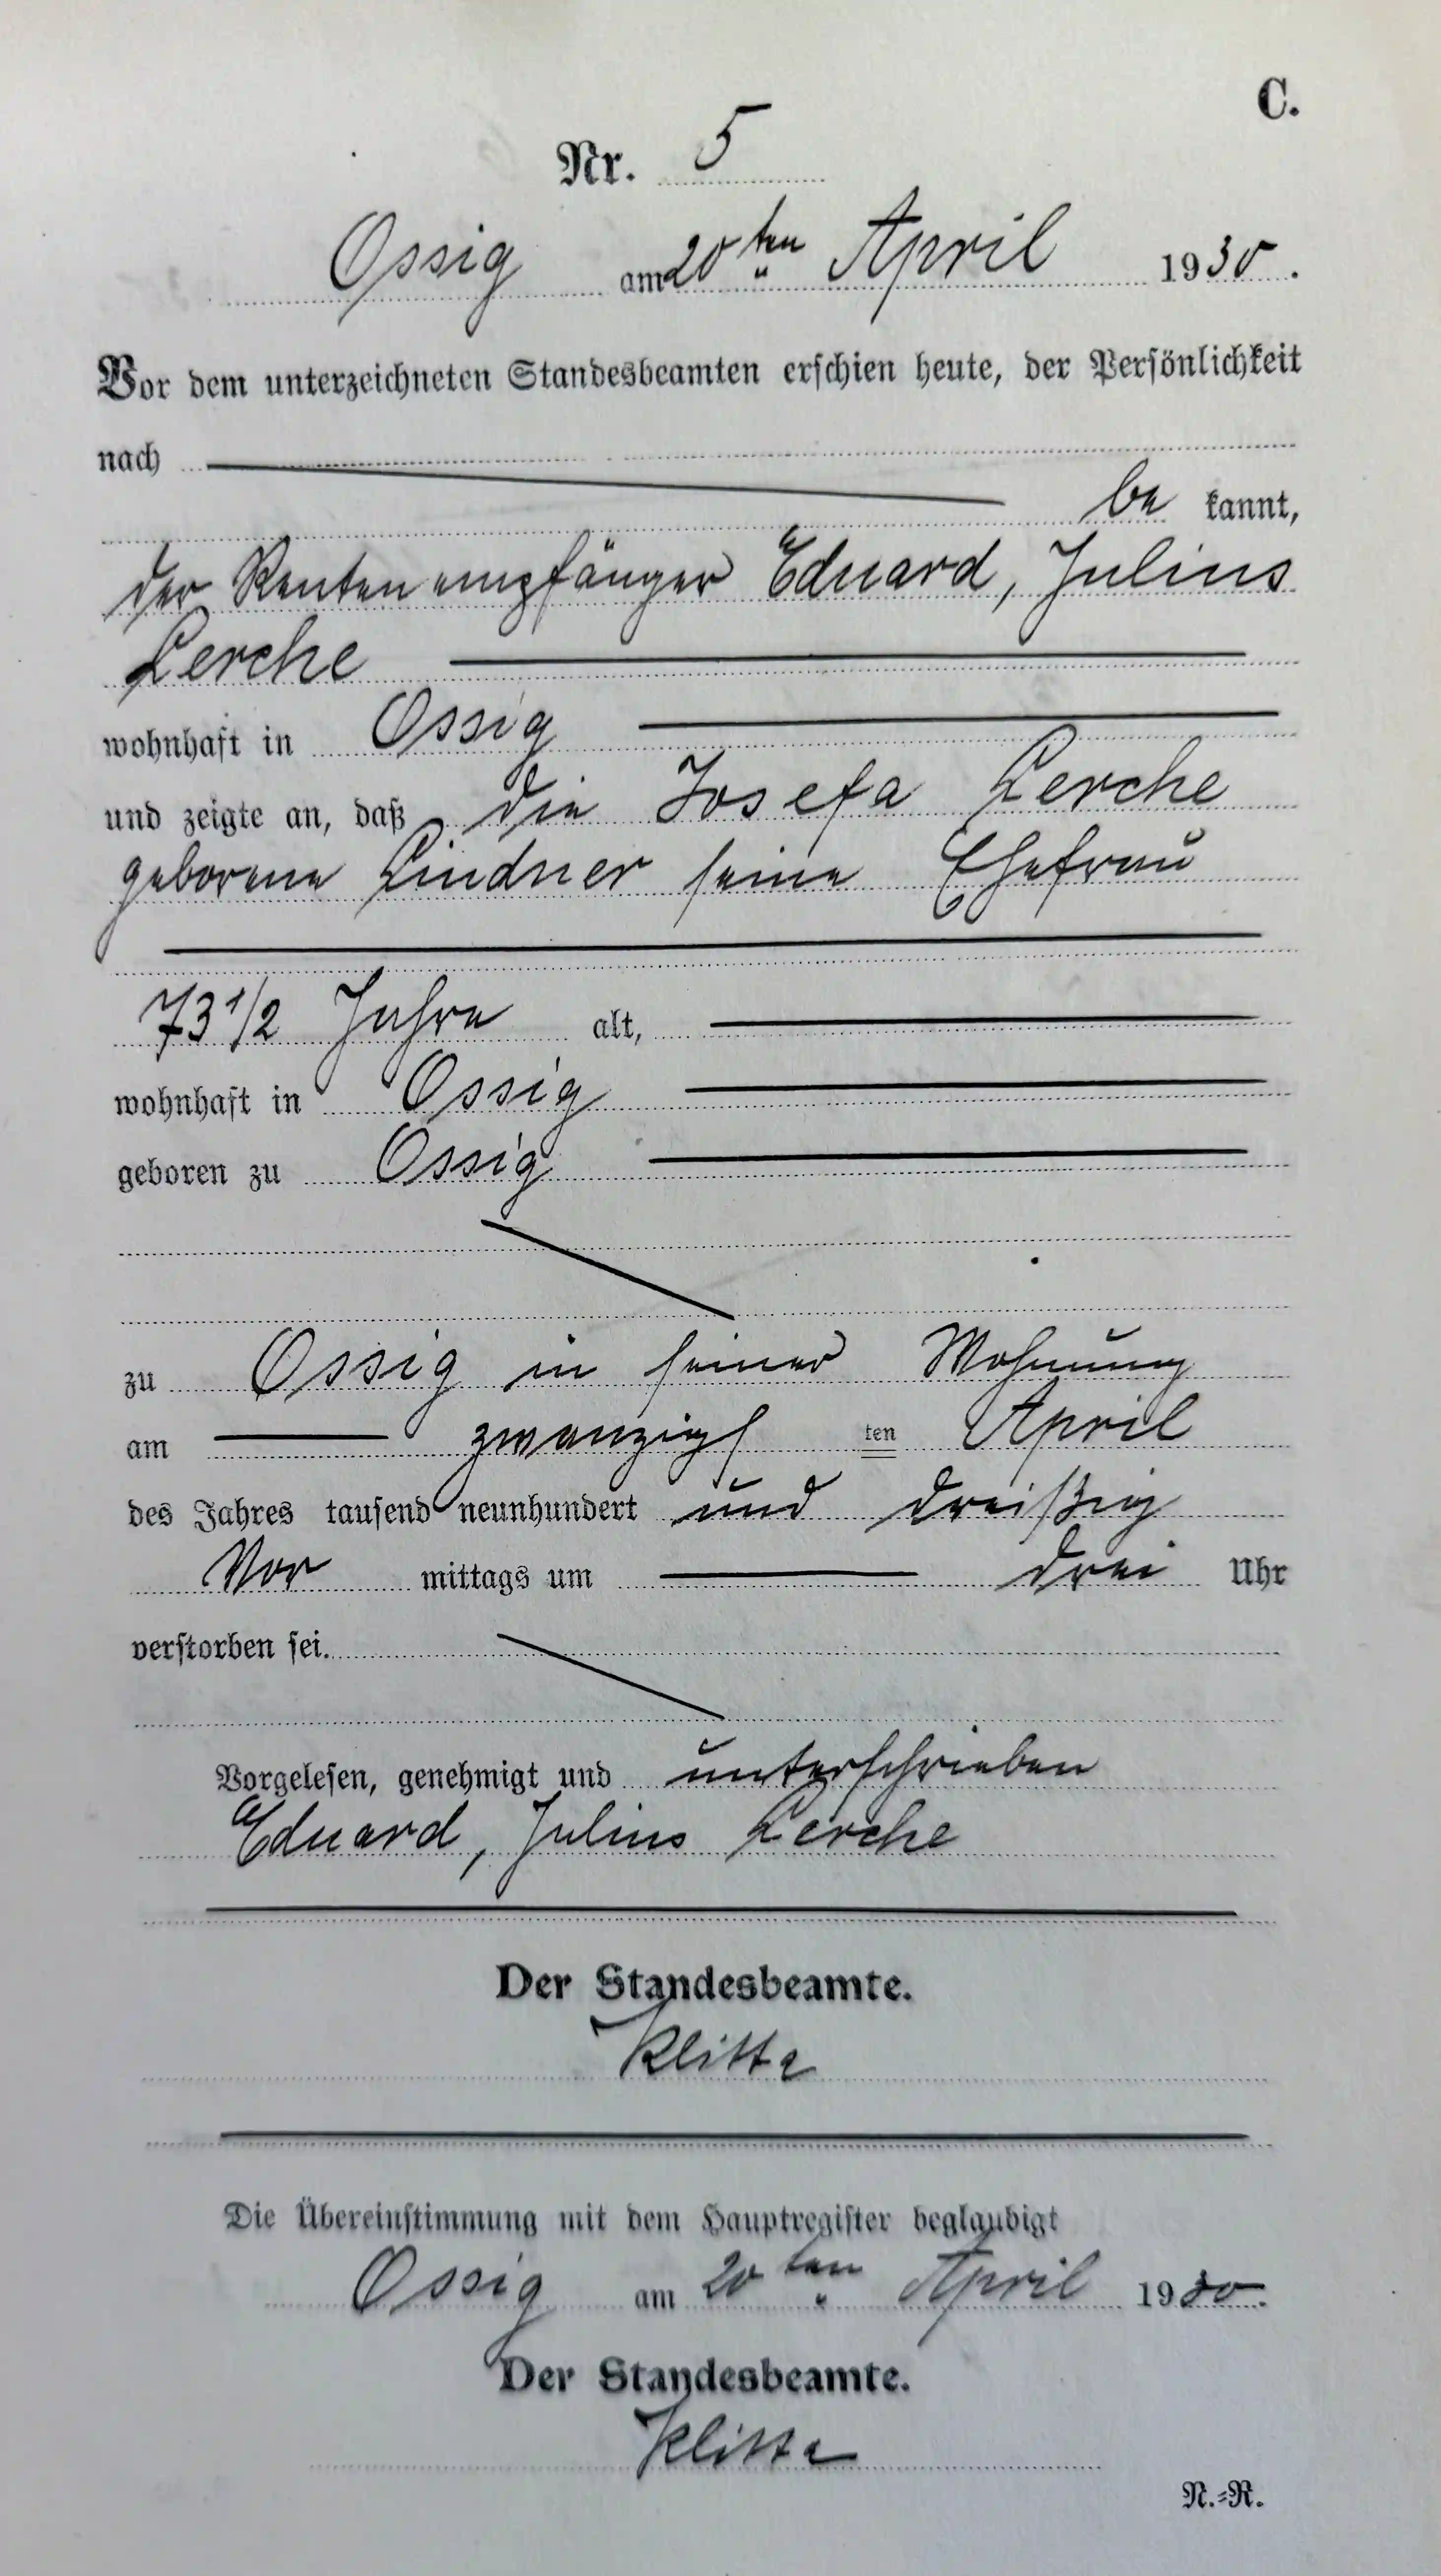 C.
Nr. 5
Ossig am 20ten April 1930.
Vor dem unterzeichneten Standesbeamten erschien heute, der Persönlichkeit
nach
be kannt,
der Rentenempfänger Eduard, Julius
Lerche
wohnhaft in Ossig
und zeigte an, daß die Josefa Lerche
geborene Lindner seine Ehefrau
73 1/2 Jahre alt,
wohnhaft in Ossig
geboren zu Ossig
zu Ossig in seiner Wohnung
am zwanzigs ten April
des Jahres tausend neunhundert und dreißig
Vor mittags um drei Uhr
verstorben sei.
Vorgelesen, genehmigt und unterschrieben
Eduard, Julius Lerche
Der Standesbeamte.
Klitta
Die Übereinstimmung mit dem Hauptregister beglaubigt
Ossig am 20ten April 1930.
Der Standesbeamte.
Klitta
N.=R.